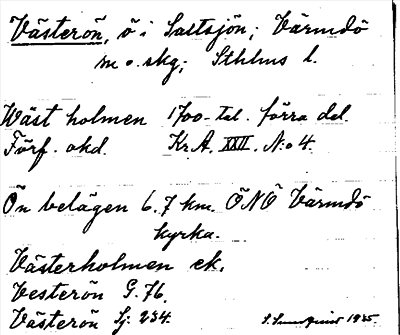 Västerön, ö i Saltsjön; Värmdö
m. o. skg; Sthlms l.
Wäst holmen 1700-tal. förra del.
Förf. okd. Kr. A. XXII. N:o 4.
Ön belägen 6,7 km. ÖNÖ Värmdö
kyrka.
Västerholmen ek.
Vesterön G. 76.
Västerön Sj. 234.
1935